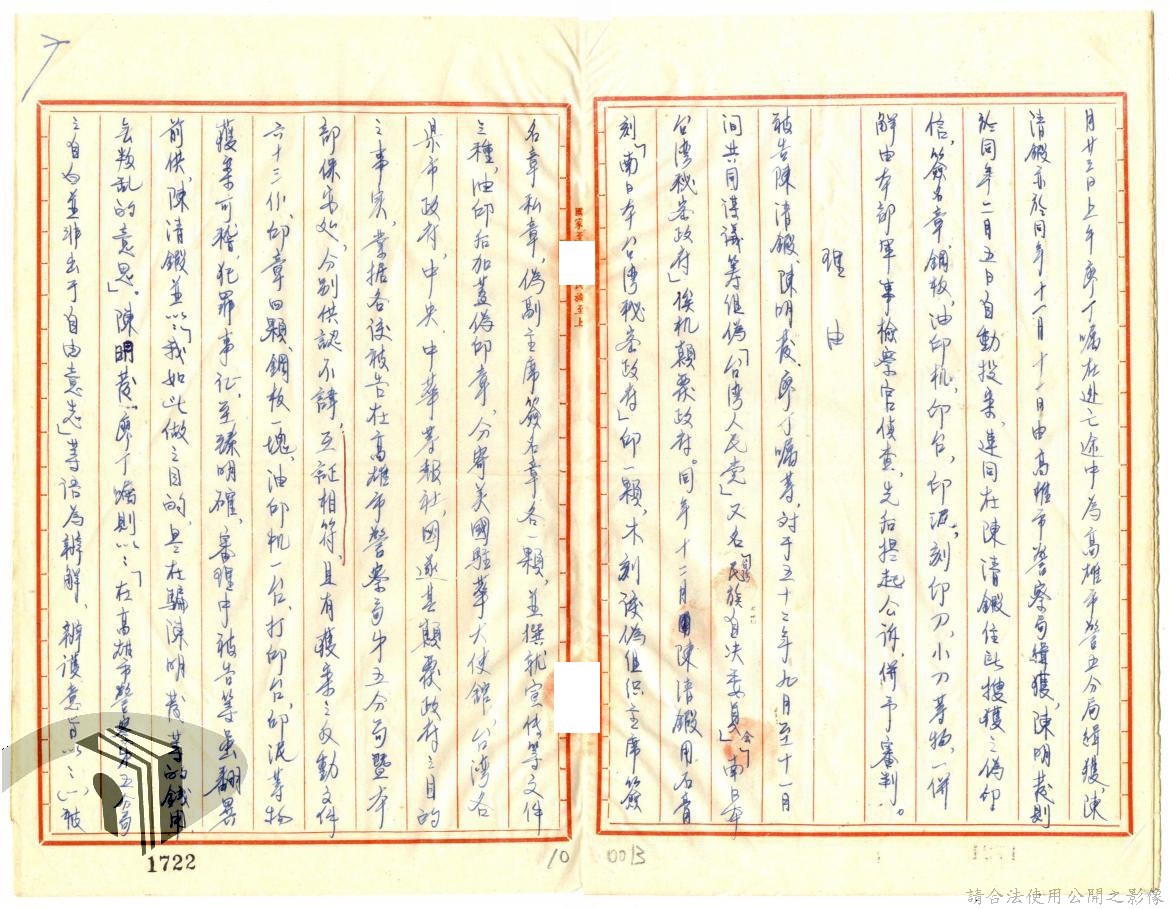 月廿三日上午廖丁嘱在逃亡途中為高雄市警五分局緝獲，陳
清鍛亦於同年十一月十一日由高雄市警察局緝獲，陳明發則
於同年二月五日自動投案，連同在陳清鍛住所搜獲之偽印
信，簽名章，鋼板，油印机，印台，印泥，刻印刀，小刀等物，一併
解由本部軍事檢察官偵查，先后提起公訴，併予審判。
理由
被告陳清鍛、陳明發、廖丁嘱等，对于五十三年九月至十一月
间共同謀議筹组偽「台湾人民党」又名「民族自决委員会」「南日本
台湾秘密政府」俟机顛覆政府。同年十二月陳清鍛用石膏
刻「南日本台湾秘密政府」印一顆，木刻该偽组织主席簽
名章私章，偽副主席簽名章各一顆，並撰就宣传等文件
三種，油印后加蓋偽印章，分寄美國駐華大使舘，台湾各
県市政府，中央、中華等報社，图遂其顛覆政府之目的
之事实，業據各该被告在高雄市警察局第五分局暨本
部保安处，分别供認不諱，互証相符，且有獲案之反動文件
六十三件，印章四顆鋼板一塊，油印机一台，打印台，印泥等物
獲案可稽，犯罪事証，至臻明確，審理中被告等虽翻異
前供，陳清鍛並以：「我如此做之目的，是在騙陳明發等的錢用，
無叛乱的意思」。陳明發、廖丁嘱則以：「在高雄市警察第五分局
之自白並非出于自由意志」等語為辯解，辯護意旨以：「被
國家至
民族至上
1722
10
0013
請合法使用公開之影像